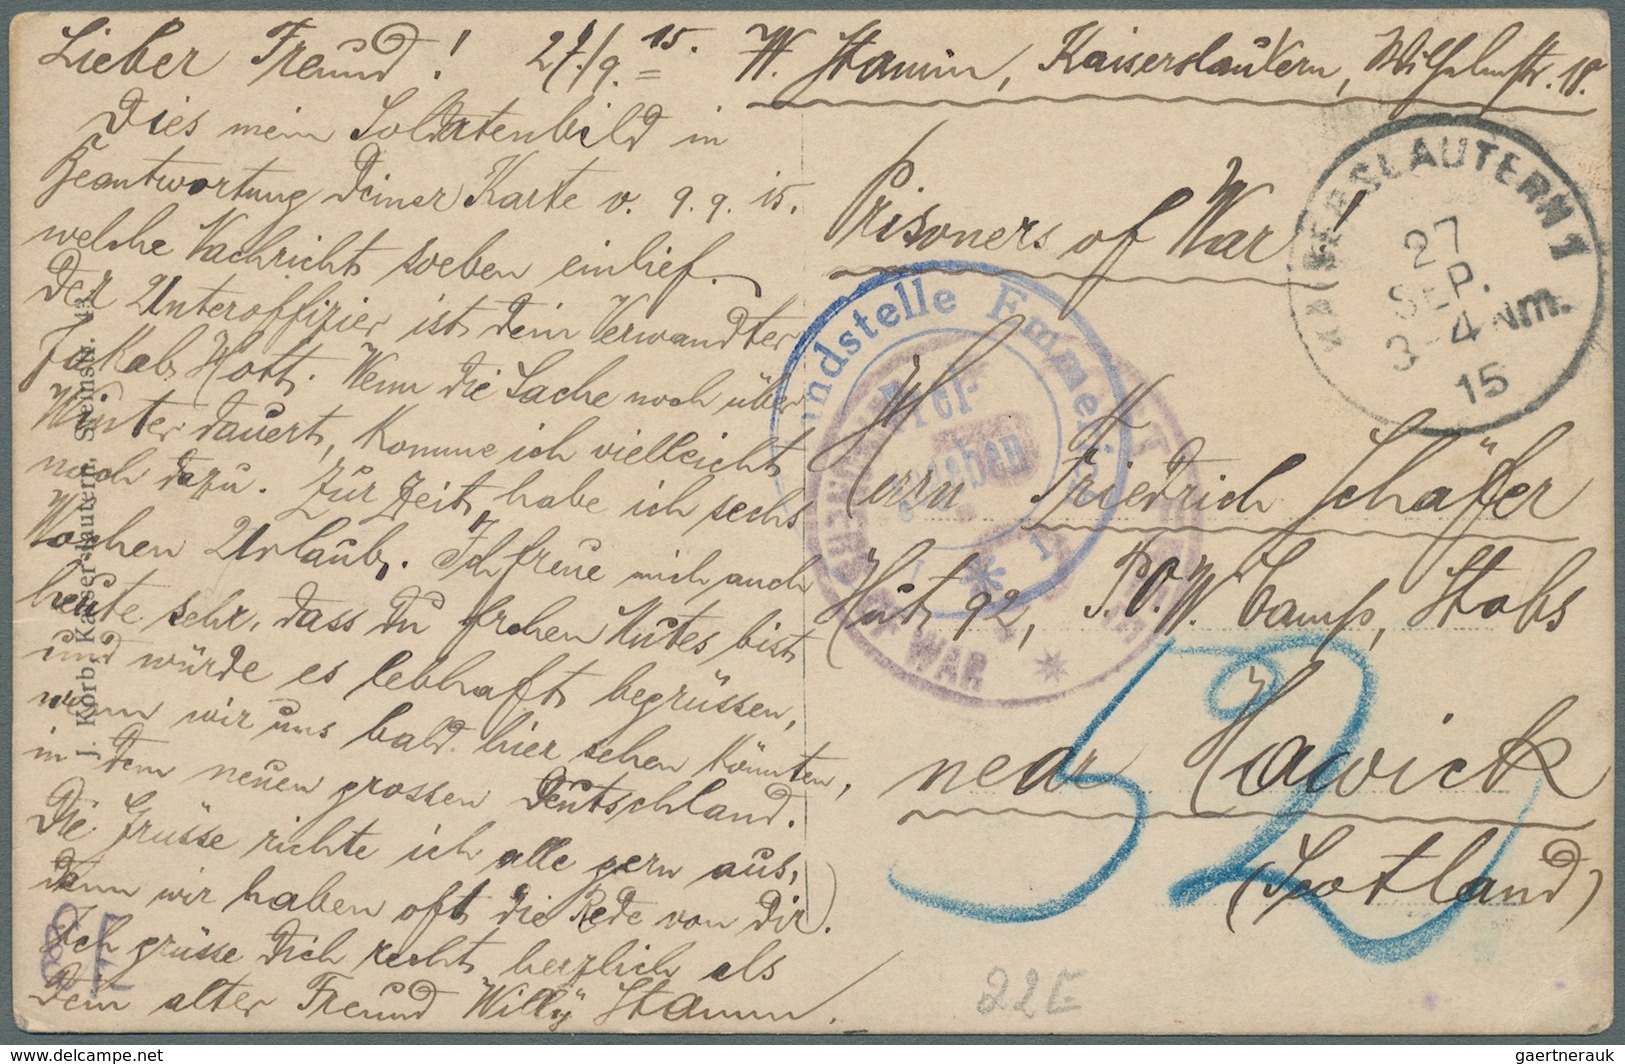 Lieber Freund! 27./9. 15. W. Stamm, Kaiserslautern, Wilhelmstr. 18.
Dies mein Soldatenbild in
Beantwortung Deiner Karte v. 9. 9. 15.
welche Nachricht soeben einlief.
Der Unteroffizier ist dein Verwandter
Jakob Hott. Wenn die Sache noch über
Winter dauert, komme ich vielleicht
noch dazu. Zur Zeit habe ich sechs
Wochen Urlaub. Ich freue mich auch
heute sehr, dass du frohen Mutes bist
und würde es lebhaft begrüssen,
wenn wir uns bald hier sehen könnten,
in dem neuen grossen Deutschland.
Die Grüsse richte ich alle gern aus,
denn wir haben oft die Rede von Dir.
Ich grüsse Dich recht herzlich als
Dein alter Freund "Willy" Stamm.
J. Korb, Kaiserslautern, Steinstr.
Prisoners of War!
KAISERSLAUTERN 1
27
SEP.
3-4 Nm.
15
Herrn Friedrich Schäfer
Hut 92, P.O.W. Camp, Stobs
near Hawick
(Scotland)
52
OF WAR
22E
www.delcampe.net
gaertnerauk